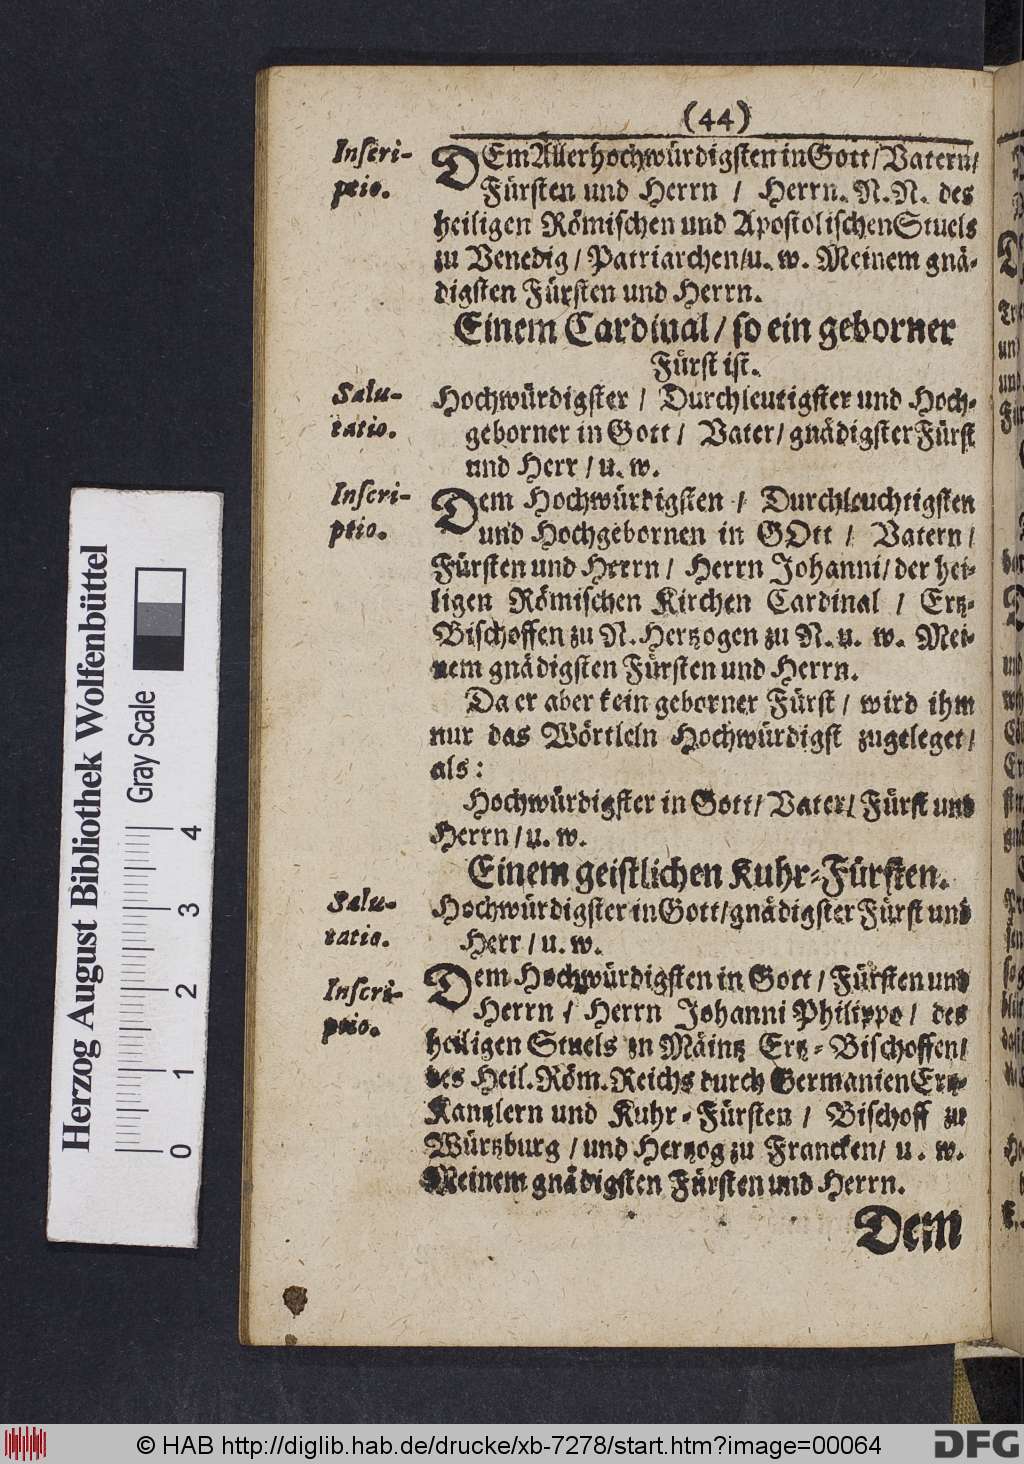 (44)
Inscri-
ptio.
DEm Allerhochwürdigsten in Gott/ Vatern/
Fürsten und Herrn / Herrn. N. N. des
heiligen Römischen und Apostolischen Stuels
zu Venedig / Patriarchen/u. w. Meinem gnä-
digsten Fürsten und Herrn.
Einem Cardinal / so ein geborner
Fürst ist.
Salu-
tatio.
Hochwürdigster / Durchleutigster und Hoch-
geborner in Gott / Vater / gnädigster Fürst
und Herr / u. w.
Inscri-
ptio.
Dem Hochwürdigsten / Durchleuchtigsten
und Hochgebornen in GOtt / Vatern /
Fürsten und Herrn / Herrn Johanni / der hei-
ligen Römischen Kirchen Cardinal / Ertz-
Bischoffen zu N. Hertzogen zu N. u. w. Mei-
nem gnädigsten Fürsten und Herrn.
Da er aber kein geborner Fürst / wird ihm
nur das Wörtlein Hochwürdigst zugeleget /
als:
Hochwürdigster in Gott / Vater / Fürst und
Herrn / u. w.
Einem geistlichen Kuhr-Fürsten.
Salu-
tatio.
Hochwürdigster in Gott / gnädigster Fürst und
Herr / u. w.
Inscri-
ptio.
Dem Hochwürdigsten in Gott / Fürsten und
Herrn / Herrn Johanni Philippo / des
heiligen Stuels zu Mäintz Ertz-Bischoffen /
des Heil. Röm. Reichs durch Germanien Ertz-
Kantzlern und Kuhr-Fürsten / Bischoff zu
Würtzburg / und Hertzog zu Francken / u. w.
Meinem gnädigsten Fürsten und Herrn.
Dem
Herzog August Bibliothek Wolfenbüttel
Gray Scale
0 1 2 3 4
© HAB http://diglib.hab.de/drucke/xb-7278/start.htm?image=00064
DFG